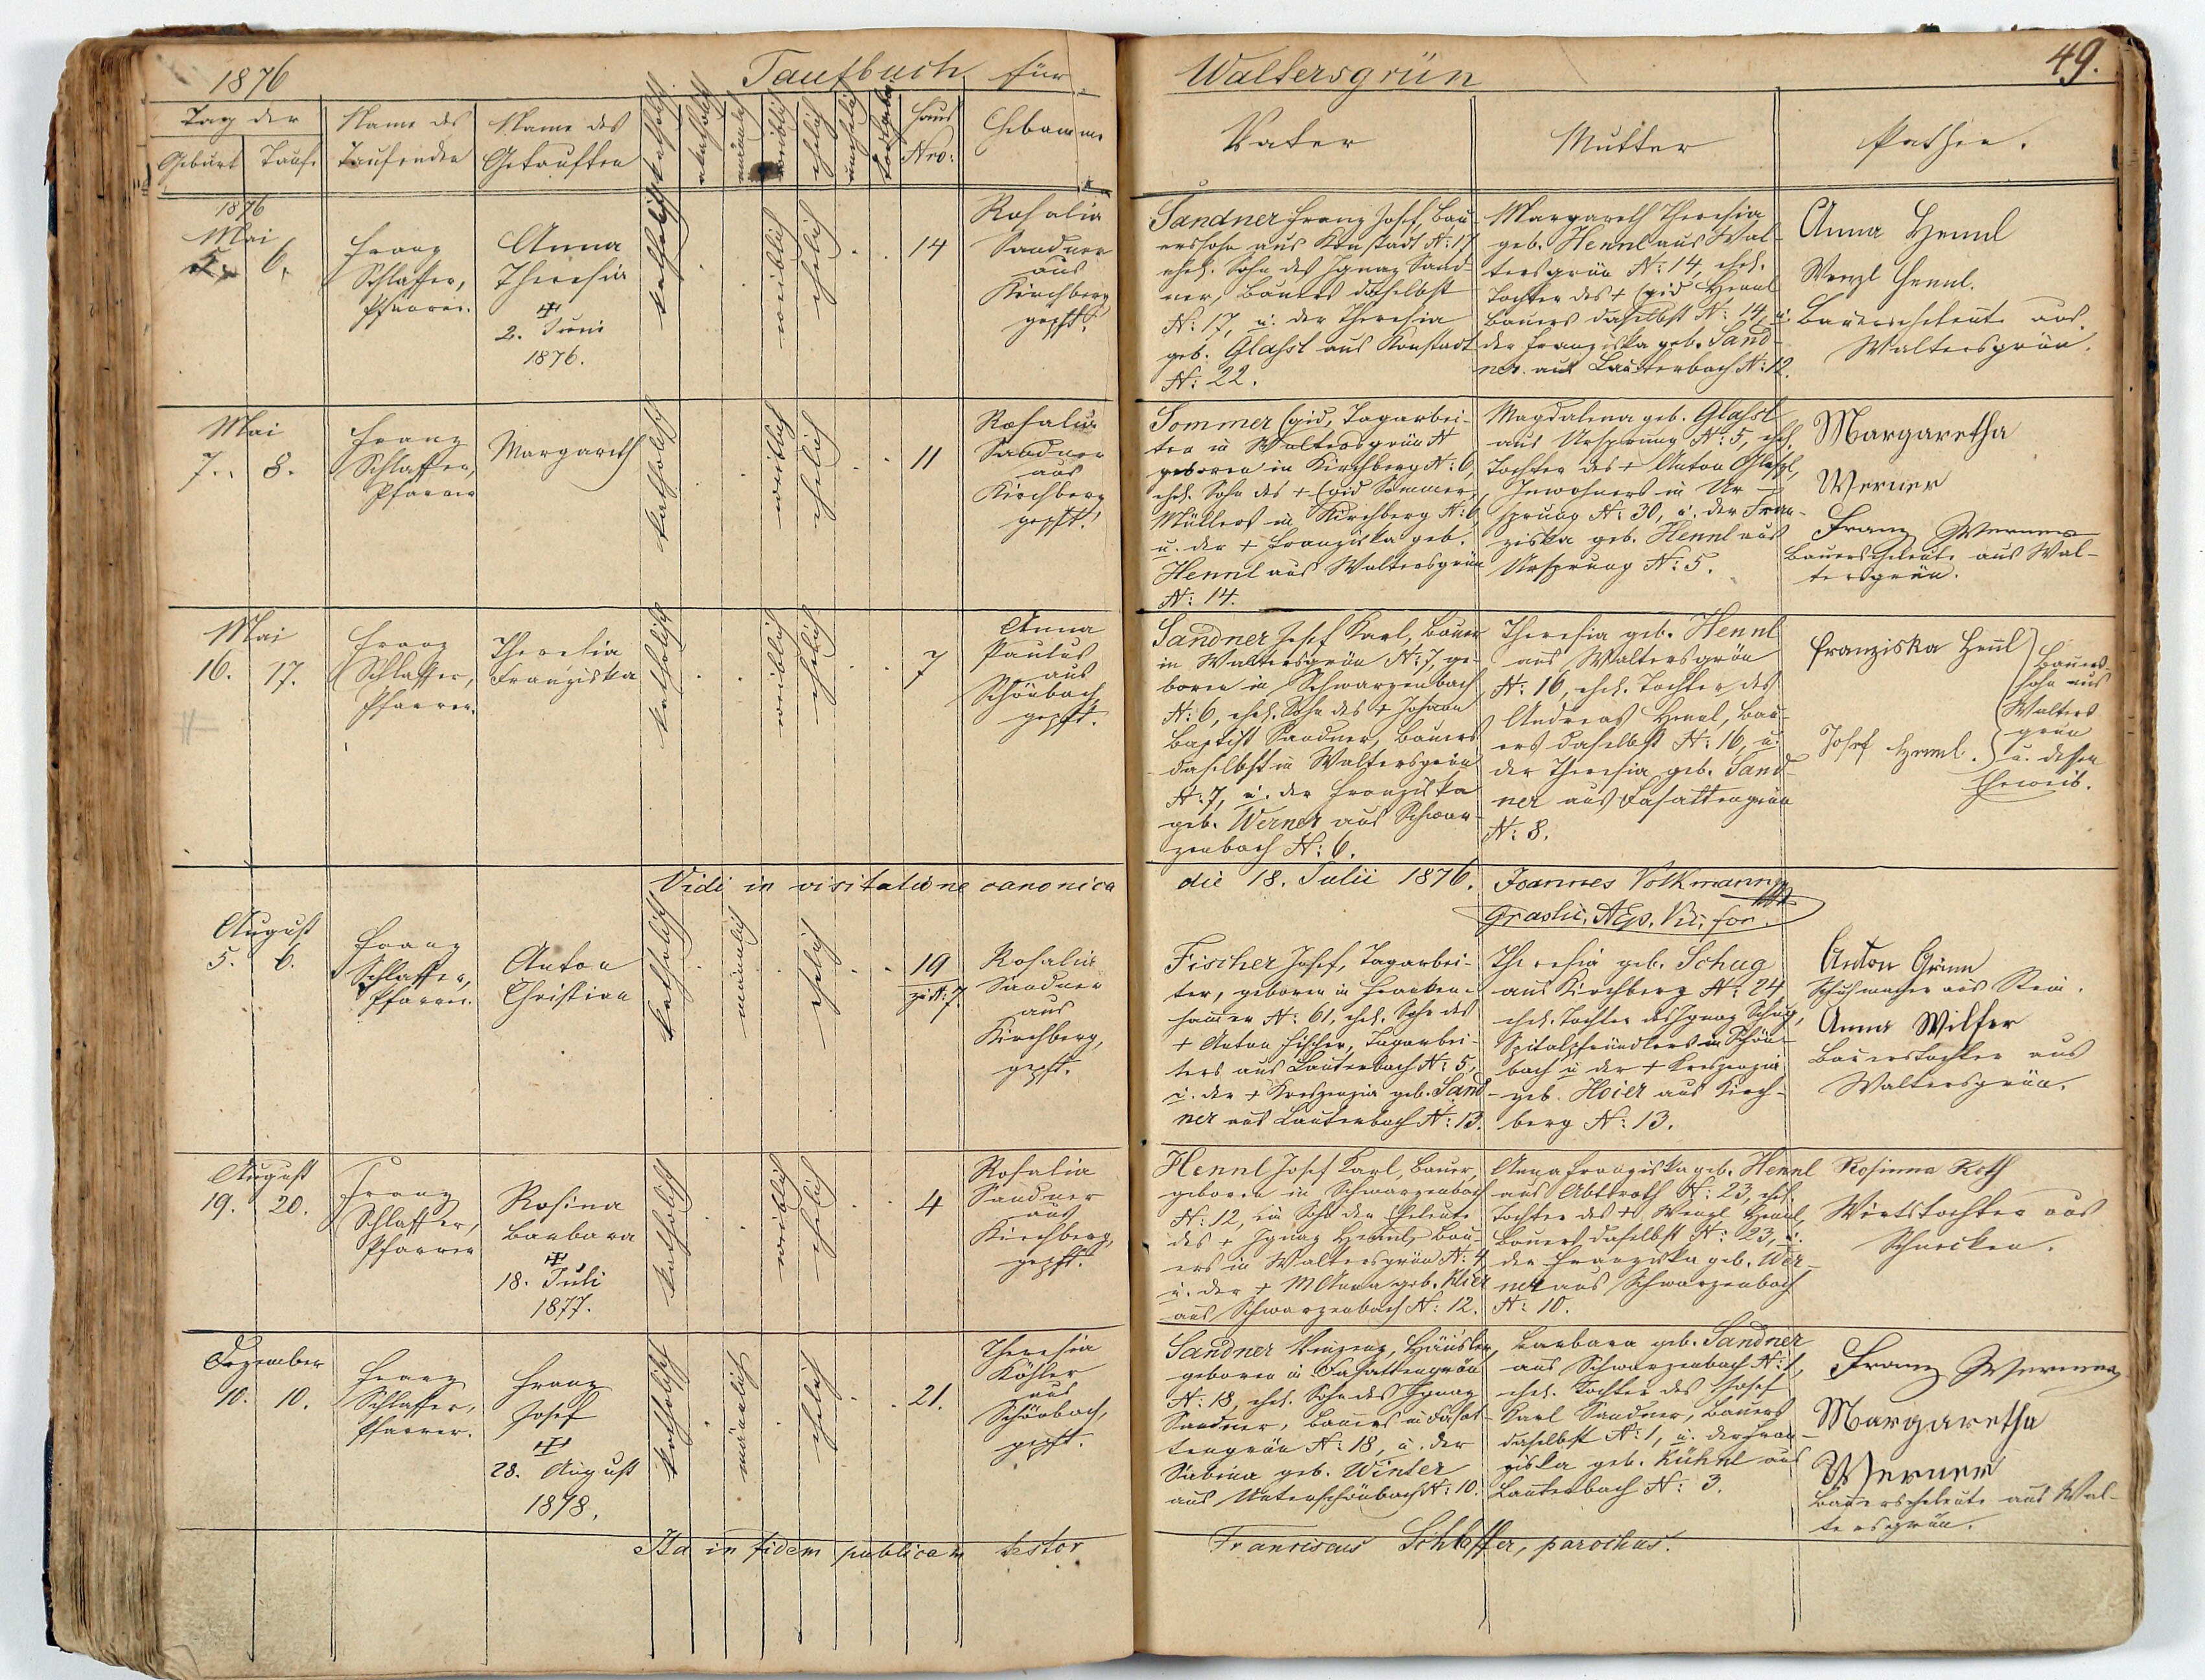 1876 Taufbuch für
Waltersgrün 49.
Tag der
Geburt Taufe
Name des
Taufenden
Name des
Getauften
katholisch
akatholisch
männlich
weiblich
ehelich
unehelich
Haus
Nro:
Hebamme
Vater
Mutter
Pathen.
1876
Mai
6.
Franz
Schlaffer,
Pfarrer.
Anna
Theresia
2. Juni
1876.
katholisch
weiblich
ehelich
14
Rosalia
Sandner
aus
Kirchberg
gepft.
Sandner Franz Josef, Bau-
erssohn aus Konstadt N: 17
ehel. Sohn des Ignaz Sand-
ner, Bauers daselbst
N: 17, u. der Theresia
geb. Glassl aus Konstadt
N: 22.
Margareth Theresia
geb. Hennl aus Wal-
tersgrün N: 14, ehel.
Tochter des + Egid Hennl
Bauers daselbst N: 14, u.
der Franziska geb. Sand-
ner aus Lauterbach N: 12.
Anna Hennl
Wenzl Hennl.
Bauerseheleute aus
Waltersgrün.
Mai
7. 8.
Franz
Schlaffer,
Pfarrer
Margareth
katholisch
weiblich
ehelich
11
Rosalia
Sandner
aus
Kirchberg
gepft.
Sommer Egid, Tagarbei-
ter in Waltersgrün N
geboren in Kirchberg N: 6,
ehel. Sohn des + Egid Sommer,
Müllers in Kirchberg N: 6,
u. der + Franziska geb.
Hennl aus Waltersgrün
N: 14.
Magdalena geb. Glassl
aus Ursprung N: 5, ehel.
Tochter des + Anton Glassl,
Inwohners in Ur-
sprung N: 30, u. der Fran-
ziska geb. Hennl aus
Ursprung N: 5.
Margaretha
Werner
Franz Werner
Bauerseheleute aus Wal-
tersgrün.
Mai
16. 17.
Franz
Schlaffer,
Pfarrer.
Theresia
Franziska
katholisch
weiblich
ehelich
7
Anna
Paulus
aus
Schönbach
gepft.
Sandner Josef Karl, Bauer
in Waltersgrün N: 7, ge-
boren in Schwarzenbach
N: 6, ehel. Sohn des + Johann
Baptist Sandner, Bauers
daselbst in Waltersgrün
N: 7, u. der Franziska
geb. Werner aus Schwar-
zenbach N: 6.
Theresia geb. Hennl
aus Waltersgrün
N: 16, ehel. Tochter des
Andreas Hennl, Bau-
ers daselbst N: 16, u.
der Theresia geb. Sand-
ner aus Fasattengrün
N: 8.
Franziska Henl
Josef Hennl.
Bauers-
sohn aus
Walters
grün
u. dessen
Eheweib.
Vidi in visitatione canonica
die 18. Julii 1876. Joannes Volkmann
Graslic. AEp. Vic. for.
August
5. 6.
Franz
Schlaffer,
Pfarrer.
Anton
Christian
katholisch
männlich
ehelich
19
zu N: 7
Rosalia
Sandner
aus
Kirchberg,
gepft.
Fischer Josef, Tagarbei-
ter, geboren in Franken-
hammer N: 61, ehel. Sohn des
+ Anton Fischer, Tagarbei-
ters aus Lauterbach N: 5,
u. der + Kreszenzia geb. Sand-
ner aus Lauterbach N: 13.
Theresia geb. Schug
aus Kirchberg N: 24
ehel. Tochter des Ignaz Schug,
Spitalpfründlers in Schön-
bach u der + Kreszenzia
geb. Hoier aus Kirch-
berg N: 13.
Anton Grimm
Schuhmacher aus Stein.
Anna Wilfer
Bauerstochter aus
Waltersgrün.
August
19. 20.
Franz
Schlaffer,
Pfarrer
Rosina
Barbara
18. Juli
1877.
katholisch
weiblich
ehelich
4
Rosalia
Sandner
aus
Kirchberg,
gepft.
Hennl Josef Karl, Bauer,
geboren in Schwarzenbach
N: 12, ein Sohn der Eheleute
des + Ignaz Hennl, Bau-
ers in Waltersgrün N: 4,
u. der + M Anna geb. Klier
aus Schwarzenbach N: 12.
Anna Franziska geb. Hennl
aus Abtsroth N: 23, ehel.
Tochter des + Wenzl Hennl,
Bauers daselbst N: 23, u.
der Franziska geb. Wer-
ner aus Schwarzenbach
N: 10.
Rosinna Roth
Wirtstochter aus
Schnecken.
Dezember
10. 10.
Franz
Schlaffer,
Pfarrer.
Franz
Josef
28. August
1878.
katholisch
männlich
ehelich
21.
Theresia
Köhler
aus
Schönbach,
gepft.
Sandner Vinzenz, Häusler,
geboren in Fasattengrün
N: 18, ehel. Sohn des Ignaz
Sandner, Bauers in Fasat-
tengrün N: 18, u. der
Sabina geb. Winter
aus Unterschönbach N: 10.
Barbara geb. Sandner
aus Schwarzenbach N: 1,
ehel. Tochter des Josef
Karl Sandner, Bauers
daselbst N: 1, u. der Fran-
ziska geb. Kühnl aus
Lauterbach N: 3.
Franz Werner
Margaretha
Werner
Bauerseheleute aus Wal-
tersgrün.
Ita in fidem publicam testor
Franciscus Schlaffer, parochus.